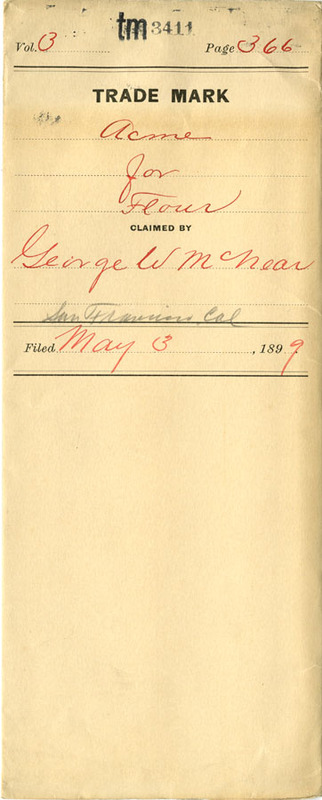 tm 3411
Vol. 3 Page 366
TRADE MARK
Acme
for
Flour
CLAIMED BY
George W McNear
San Francisco Cal
Filed May 3, 1899